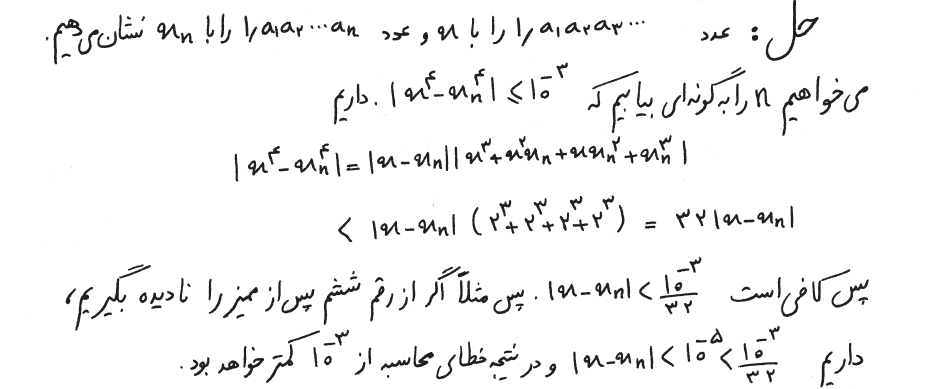 حل: عدد ۱٫a₁a₂a₃… را با x و عدد ۱٫a₁a₂…aₙ را با xₙ نشان می‌دهیم.
می‌خواهیم n را به گونه‌ای بیابیم که |x⁴-xₙ⁴| ≤ ۱۰⁻³. داریم
|x⁴-xₙ⁴| = |x-xₙ||x³+x²xₙ+xxₙ²+xₙ³|
< |x-xₙ| (۲³+۲³+۲³+۲³) = ۳۲|x-xₙ|
پس کافی است |x-xₙ| < ۱۰⁻³/۳۲. پس مثلاً اگر از رقم ششم پس از ممیز را نادیده بگیریم،
داریم |x-xₙ| < ۱۰⁻⁵ < ۱۰⁻³/۳۲ و در نتیجه خطای محاسبه از ۱۰⁻³ کمتر خواهد بود.